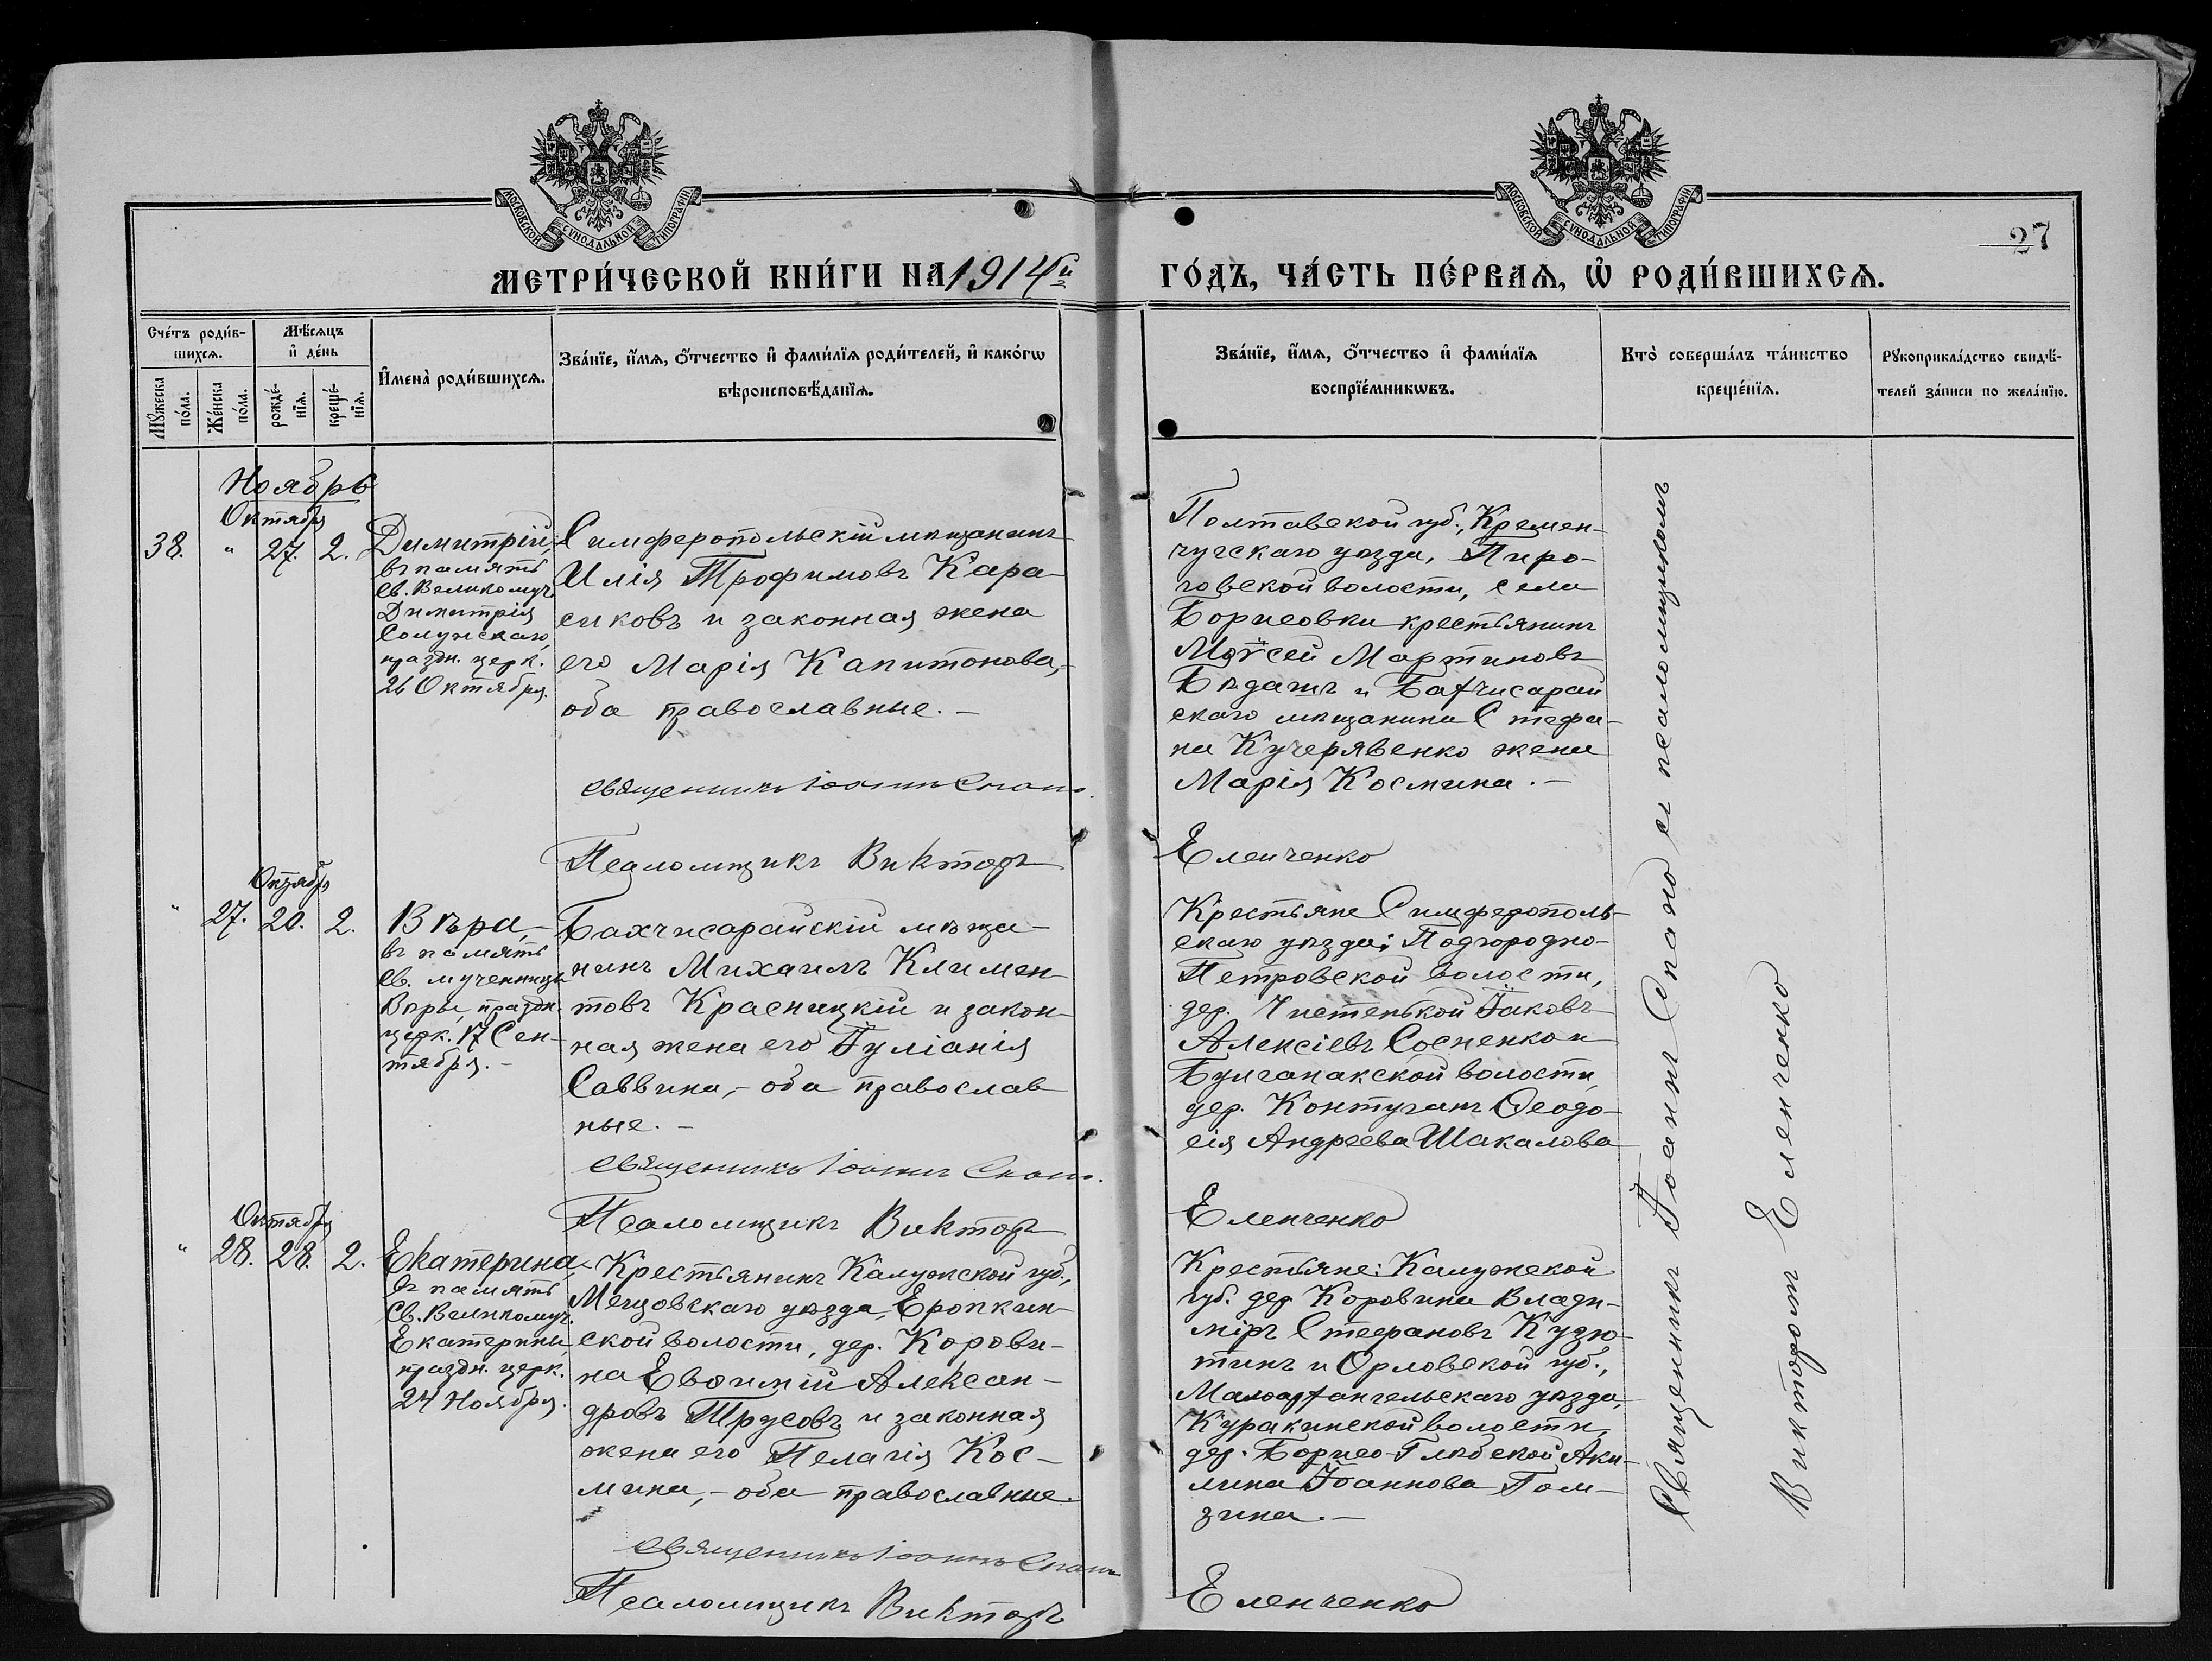 МОСКОВСКОЙ СѴНОДАЛЬНОЙ ТИПОГРАФІИ
МОСКОВСКОЙ СѴНОДАЛЬНОЙ ТИПОГРАФІИ
27
МЕТРИ́ЧЕСКОЙ КНИ́ГИ НА 1914й
ГО́ДЪ, ЧА́СТЬ ПЕ́РВАѦ, Ѡ҆ РОДИ́ВШИХСѦ.
Сче́тъ роди́в-
шихсѧ.
Мѣ́сѧцъ
и҆ де́нь
Мꙋ́жеска
по́ла.
Же́нска
по́ла.
рожде́-
нїѧ.
креще́-
нїѧ.
И҆мена̀ роди́вшихсѧ.
Зва́нїе, и҆́мѧ, ѻ҆́тчество и҆ фами́лїѧ роди́телей, и҆ како́гѡ
вѣроисповѣ́данїѧ.
Зва́нїе, и҆́мѧ, ѻ҆́тчество и҆ фами́лїѧ
воспрїе́мникѡвъ.
Кто̀ соверша́лъ та́инство
креще́нїѧ.
Рꙋкоприкла́дство свидѣ́-
телей за́писи по жела́нїю.
Ноябрь
Октября
38. " 27. 2.
Димитрій,
въ память
св. Великомуч.
Димитрія
Солунскаго,
праздн. церк.
26 Октября.
Симферопольскій мѣщанинъ
Илія Трофимовъ Кара-
сиковъ и законная жена
его Марія Капитонова,-
оба православные. -
Священникъ Іоаннъ Спано.
Псаломщикъ Викторъ
Полтавской губ., Кремен-
чугскаго уѣзда, Пиро-
говской волости, села
Борисовки крестьянинъ
Моѵсей Мартиновъ
Бѣдашъ и Бахчисарай
скаго мѣщанина Стефа-
на Кучерявенко жена
Марія Космина. -
Еленченко
Октября
" 27. 20. 2.
Вѣра,-
въ память
св. мученицы
Вѣры, праздн.
церк. 17 Сен-
тября. -
Бахчисарайскій мѣща-
нинъ Михаилъ Климен-
товъ Красницкій и закон-
ная жена его Іуліанія
Саввина,- оба православ
ные. -
Священникъ Іоаннъ Спано.
Псаломщикъ Викторъ
Крестьяне Симферополь-
скаго уѣзда: Подгородно-
Петровской волости,
дер. Чистенькой Іаковъ
Алексіевъ Сосненко и
Булганакской волости,
дер. Контуганъ Ѳеодо-
сія Андреева Шакалова
Еленченко
Октября
" 28. 28. 2.
Екатерина,
въ память
Св. Великомуч.
Екатерины,
праздн. церк.
24 Ноября.
Крестьянинъ Калужской губ.,
Мещовскаго уѣзда, Еропкин-
ской волости, дер. Корови-
на Евѳимій Алексан-
дровъ Трусовъ и законная
жена его Пелагія Кос-
мина,- оба православные.
Священникъ Іоаннъ Спано
Псаломщикъ Викторъ
Крестьяне: Калужской
губ. дер Коровина Влади-
міръ Стефановъ Кузю-
тинъ и Орловской губ.,
Малоархангельскаго уѣзда,
Куракинской волости,
дер. Борисо-Глѣбской Аки-
лина Іоаннова Гом-
зина. -
Еленченко
Священникъ Іоаннъ Спано съ псаломщикомъ
Викторомъ Еленченко